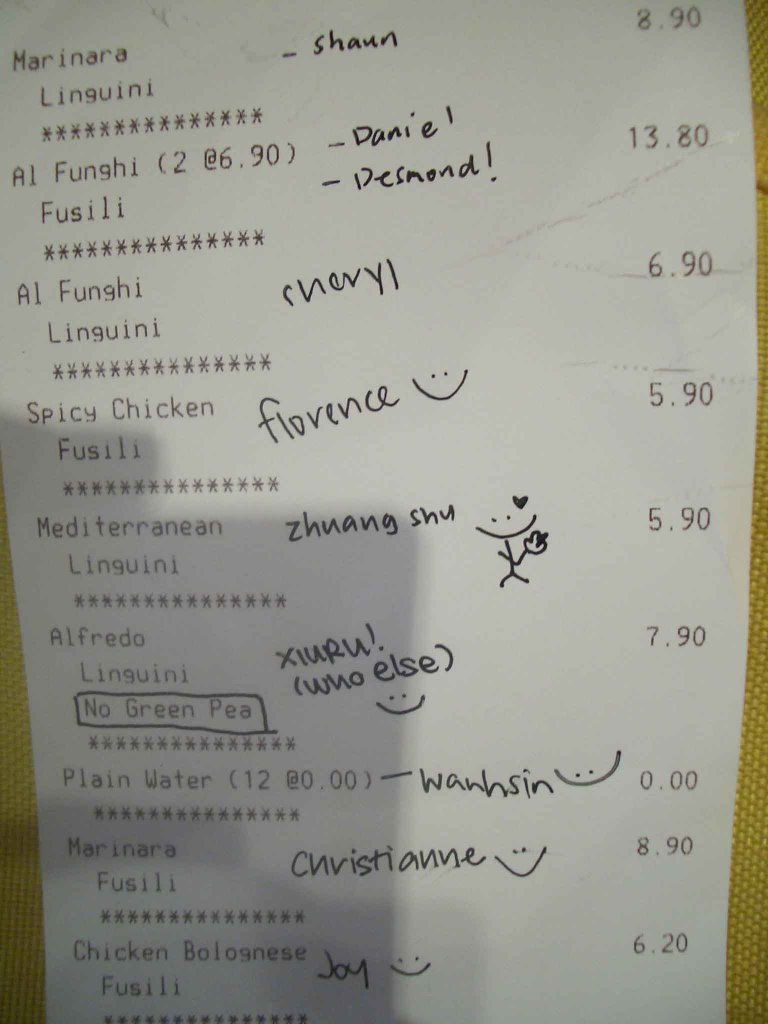 Marinara - shaun 8.90
Linguini
***************
Al Funghi (2 @6.90) - Daniel 13.80
- Desmond!
Fusili
***************
Al Funghi cheryl 6.90
Linguini
***************
Spicy Chicken florence 5.90
Fusili
***************
Mediterranean zhuang shu 5.90
Linguini
***************
Alfredo XIURU! 7.90
Linguini (who else)
No Green Pea
***************
Plain Water (12 @0.00) - wanhsin 0.00
***************
Marinara Christianne 8.90
Fusili
***************
Chicken Bolognese Joy 6.20
Fusili
***************